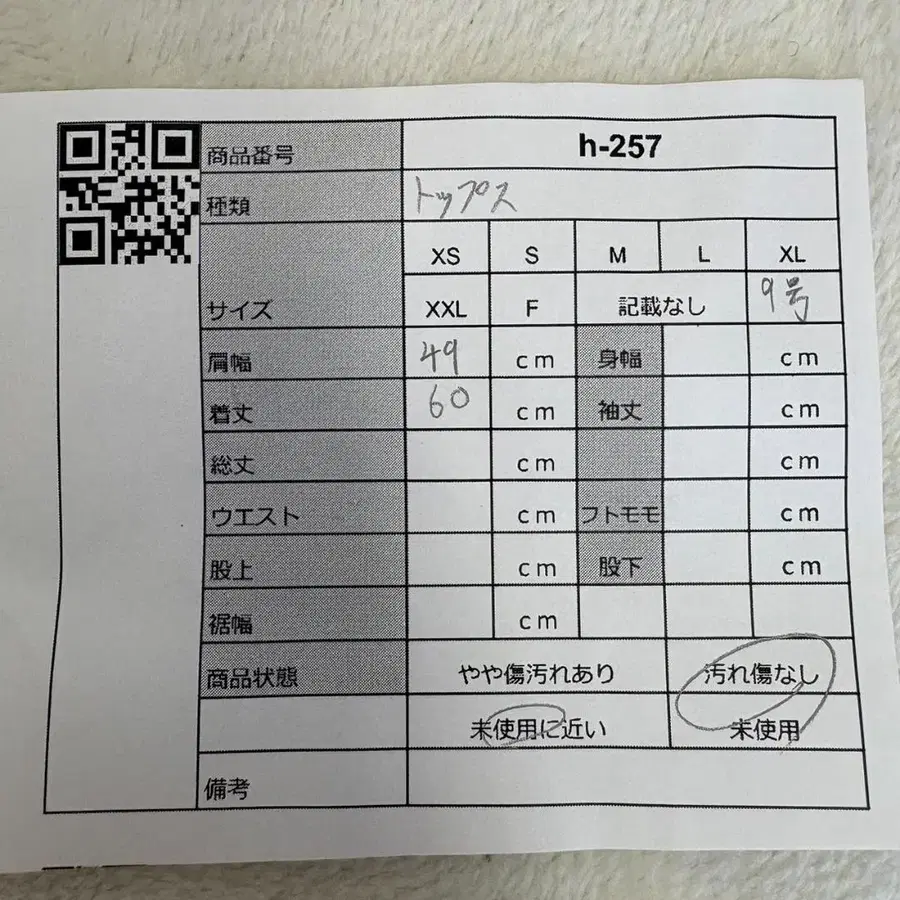 商品番号 h-257
種類 トップス
XS S M L XL
サイズ XXL F 記載なし 9号
肩幅 49 cm 身幅 cm
着丈 60 cm 袖丈 cm
総丈 cm cm
ウエスト cm フトモモ cm
股上 cm 股下 cm
裾幅 cm
商品状態 やや傷汚れあり 汚れ傷なし
未使用に近い 未使用
備考